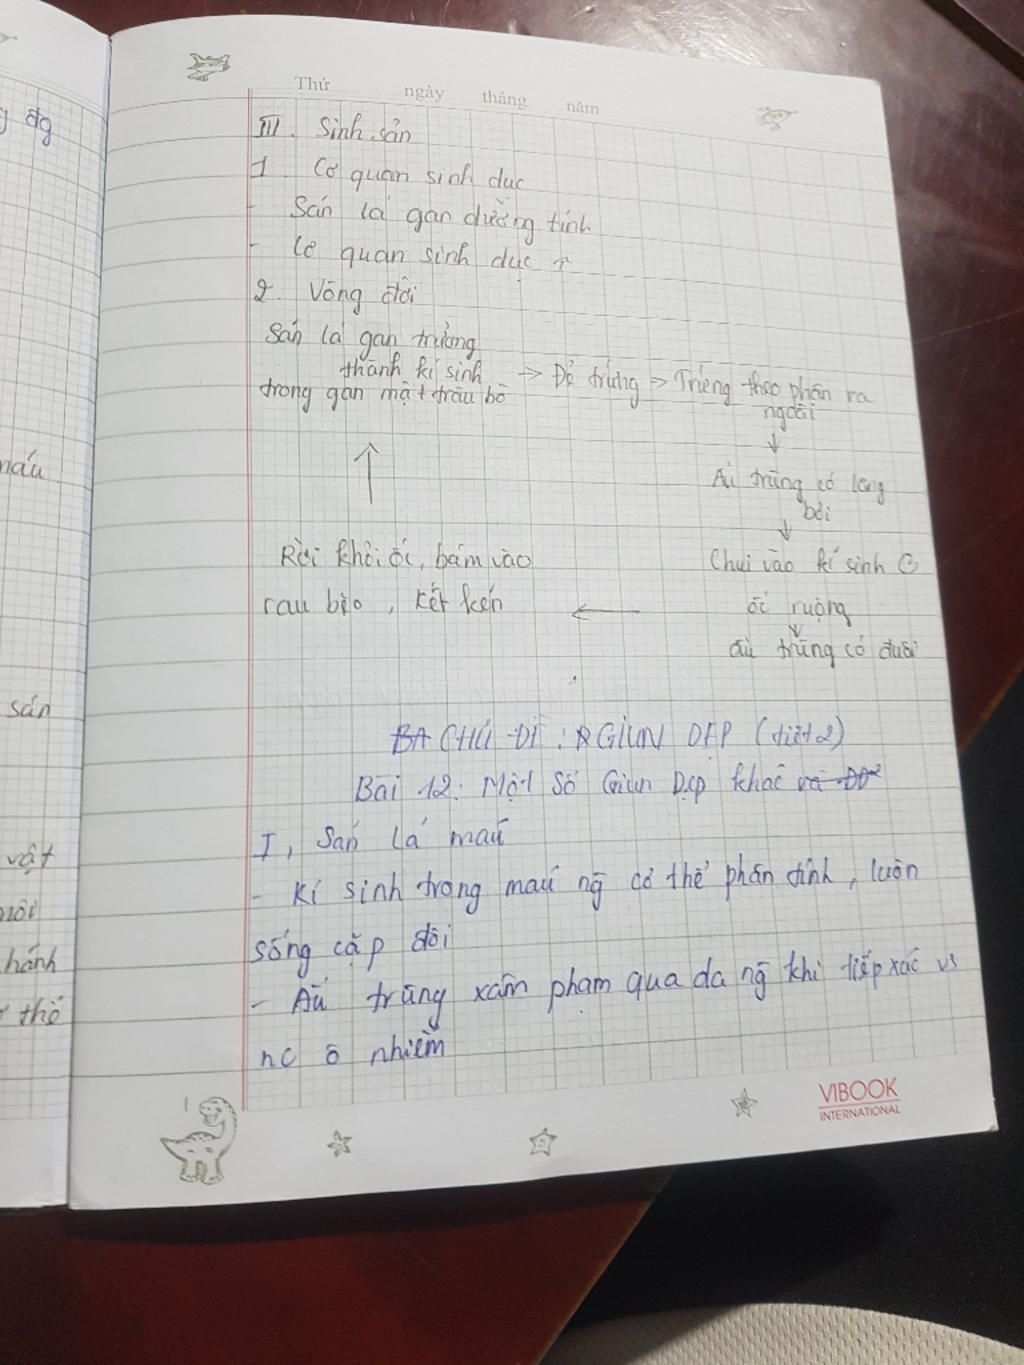 g đg
nấu
sán
vật
nôi
hành
thể
Thứ ngày tháng năm
III. Sinh sản
1 Cơ quan sinh dục
- Sán lá gan dưỡng tính
- Cơ quan sinh dục ↑
2. Vòng đời
Sán lá gan trưởng
thành kí sinh → Đẻ trứng → Trứng theo phân ra
trong gan mật trâu bò
ngoài
↓
Ấu trùng có lông
bơi
↓
Rời khỏi ốc, bám vào
Chui vào kí sinh
rau bèo, kết kén ← ốc ruộng
↓
ấu trùng có đuôi
CHỦ ĐỀ: GIUN DẸP (tiết 2)
Bài 12: Một Số Giun Dẹp khác
I, Sán lá máu
- Kí sinh trong máu ng̃ cơ thể phân tính, luôn
sống cặp đôi
- Ấu trùng xâm phạm qua da ng̃ khi tiếp xúc vs
nc ô nhiễm
VIBOOK
INTERNATIONAL